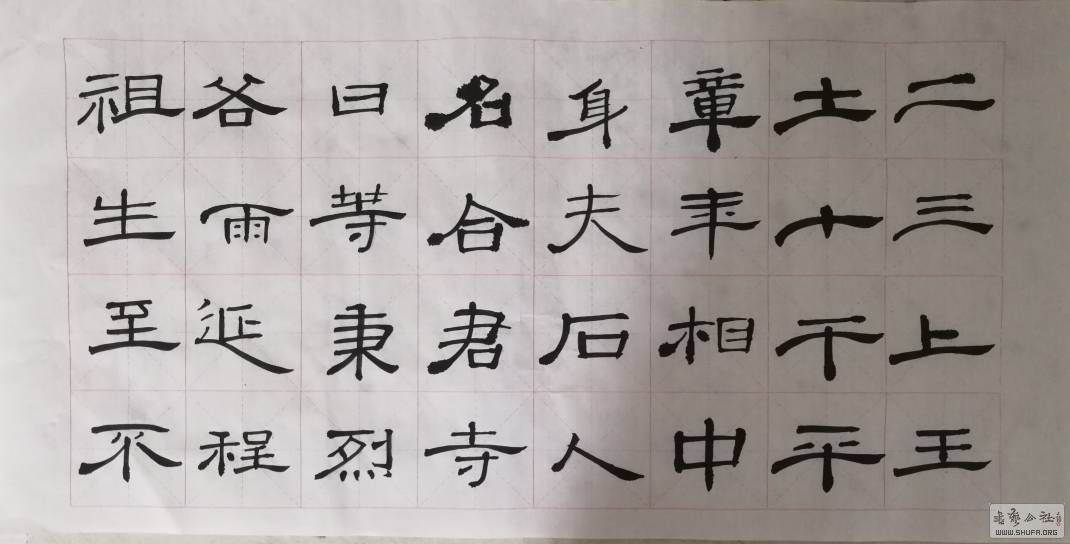 二三上王
士十干平
章年相中
身夫石人
名合君寺
曰等秉烈
谷雨延程
祖生至不
WWW.SHUFA.ORG